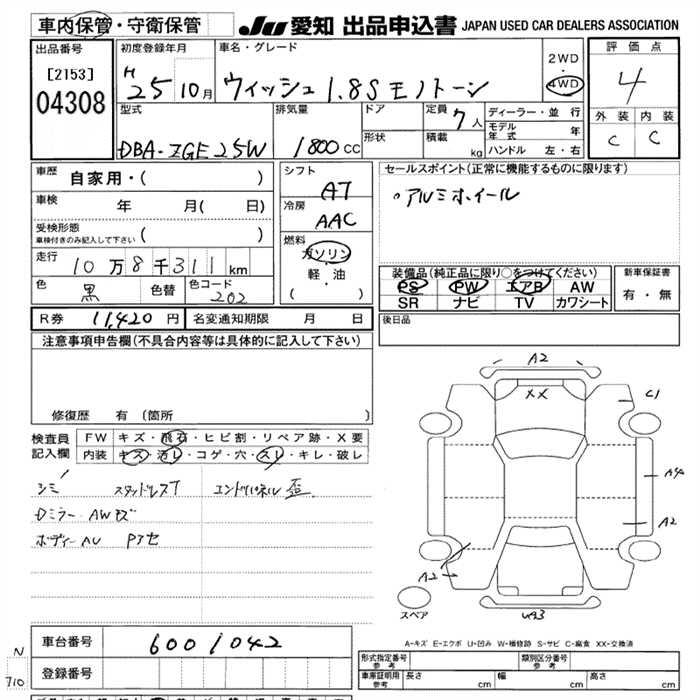 車内保管・守衛保管
JU 愛知 出品申込書 JAPAN USED CAR DEALERS ASSOCIATION
出品番号
[2153]
04308
初度登録年月
H25 10月
車名・グレード
ウィッシュ 1.8S モノトーン
2WD
4WD
評価点
4
外装 内装
C C
型式
DBA-ZGE25W
排気量
1800 CC
ドア
形状
定員 7人
積載 kg
ディーラー・並行
モデル年式 年
ハンドル 左・右
車歴
自家用・( )
車検 年 月( 日)
受検形態
車検付きのみ記入して下さい ( )
走行 10万8千311km
色 黒 色替 色コード 202
シフト
AT
冷房
AAC
燃料
ガソリン
軽・油
( )
セールスポイント(正常に機能するものに限ります)
・アルミホイール
装備品(純正品に限り○をつけてください)
PS PW エアB AW
SR ナビ TV カワシート
新車保証書
有・無
R券 11,420円 名変通知期限 月 日
後日品
注意事項申告欄(不具合内容等は具体的に記入して下さい)
修復歴 有 (箇所 )
検査員記入欄
FW キズ・飛石・ヒビ割・リペア跡・X要
内装 キズ・汚レ・コゲ・穴・スレ・キレ・破レ
シミ スタッドレス エンドパネル歪
Dミラー AWキズ
ボディーAU
A2
XX
C1
A4
A2
A2
スペア
UA3
A-キズ E-エクボ U-凹み W-補修跡 S-サビ C-腐食 XX-交換済
車台番号 6001042
登録番号
N
710
形式指定番号 参考
類別区分番号 参考
車庫証明用 参考 長さ cm 幅 cm 高さ cm